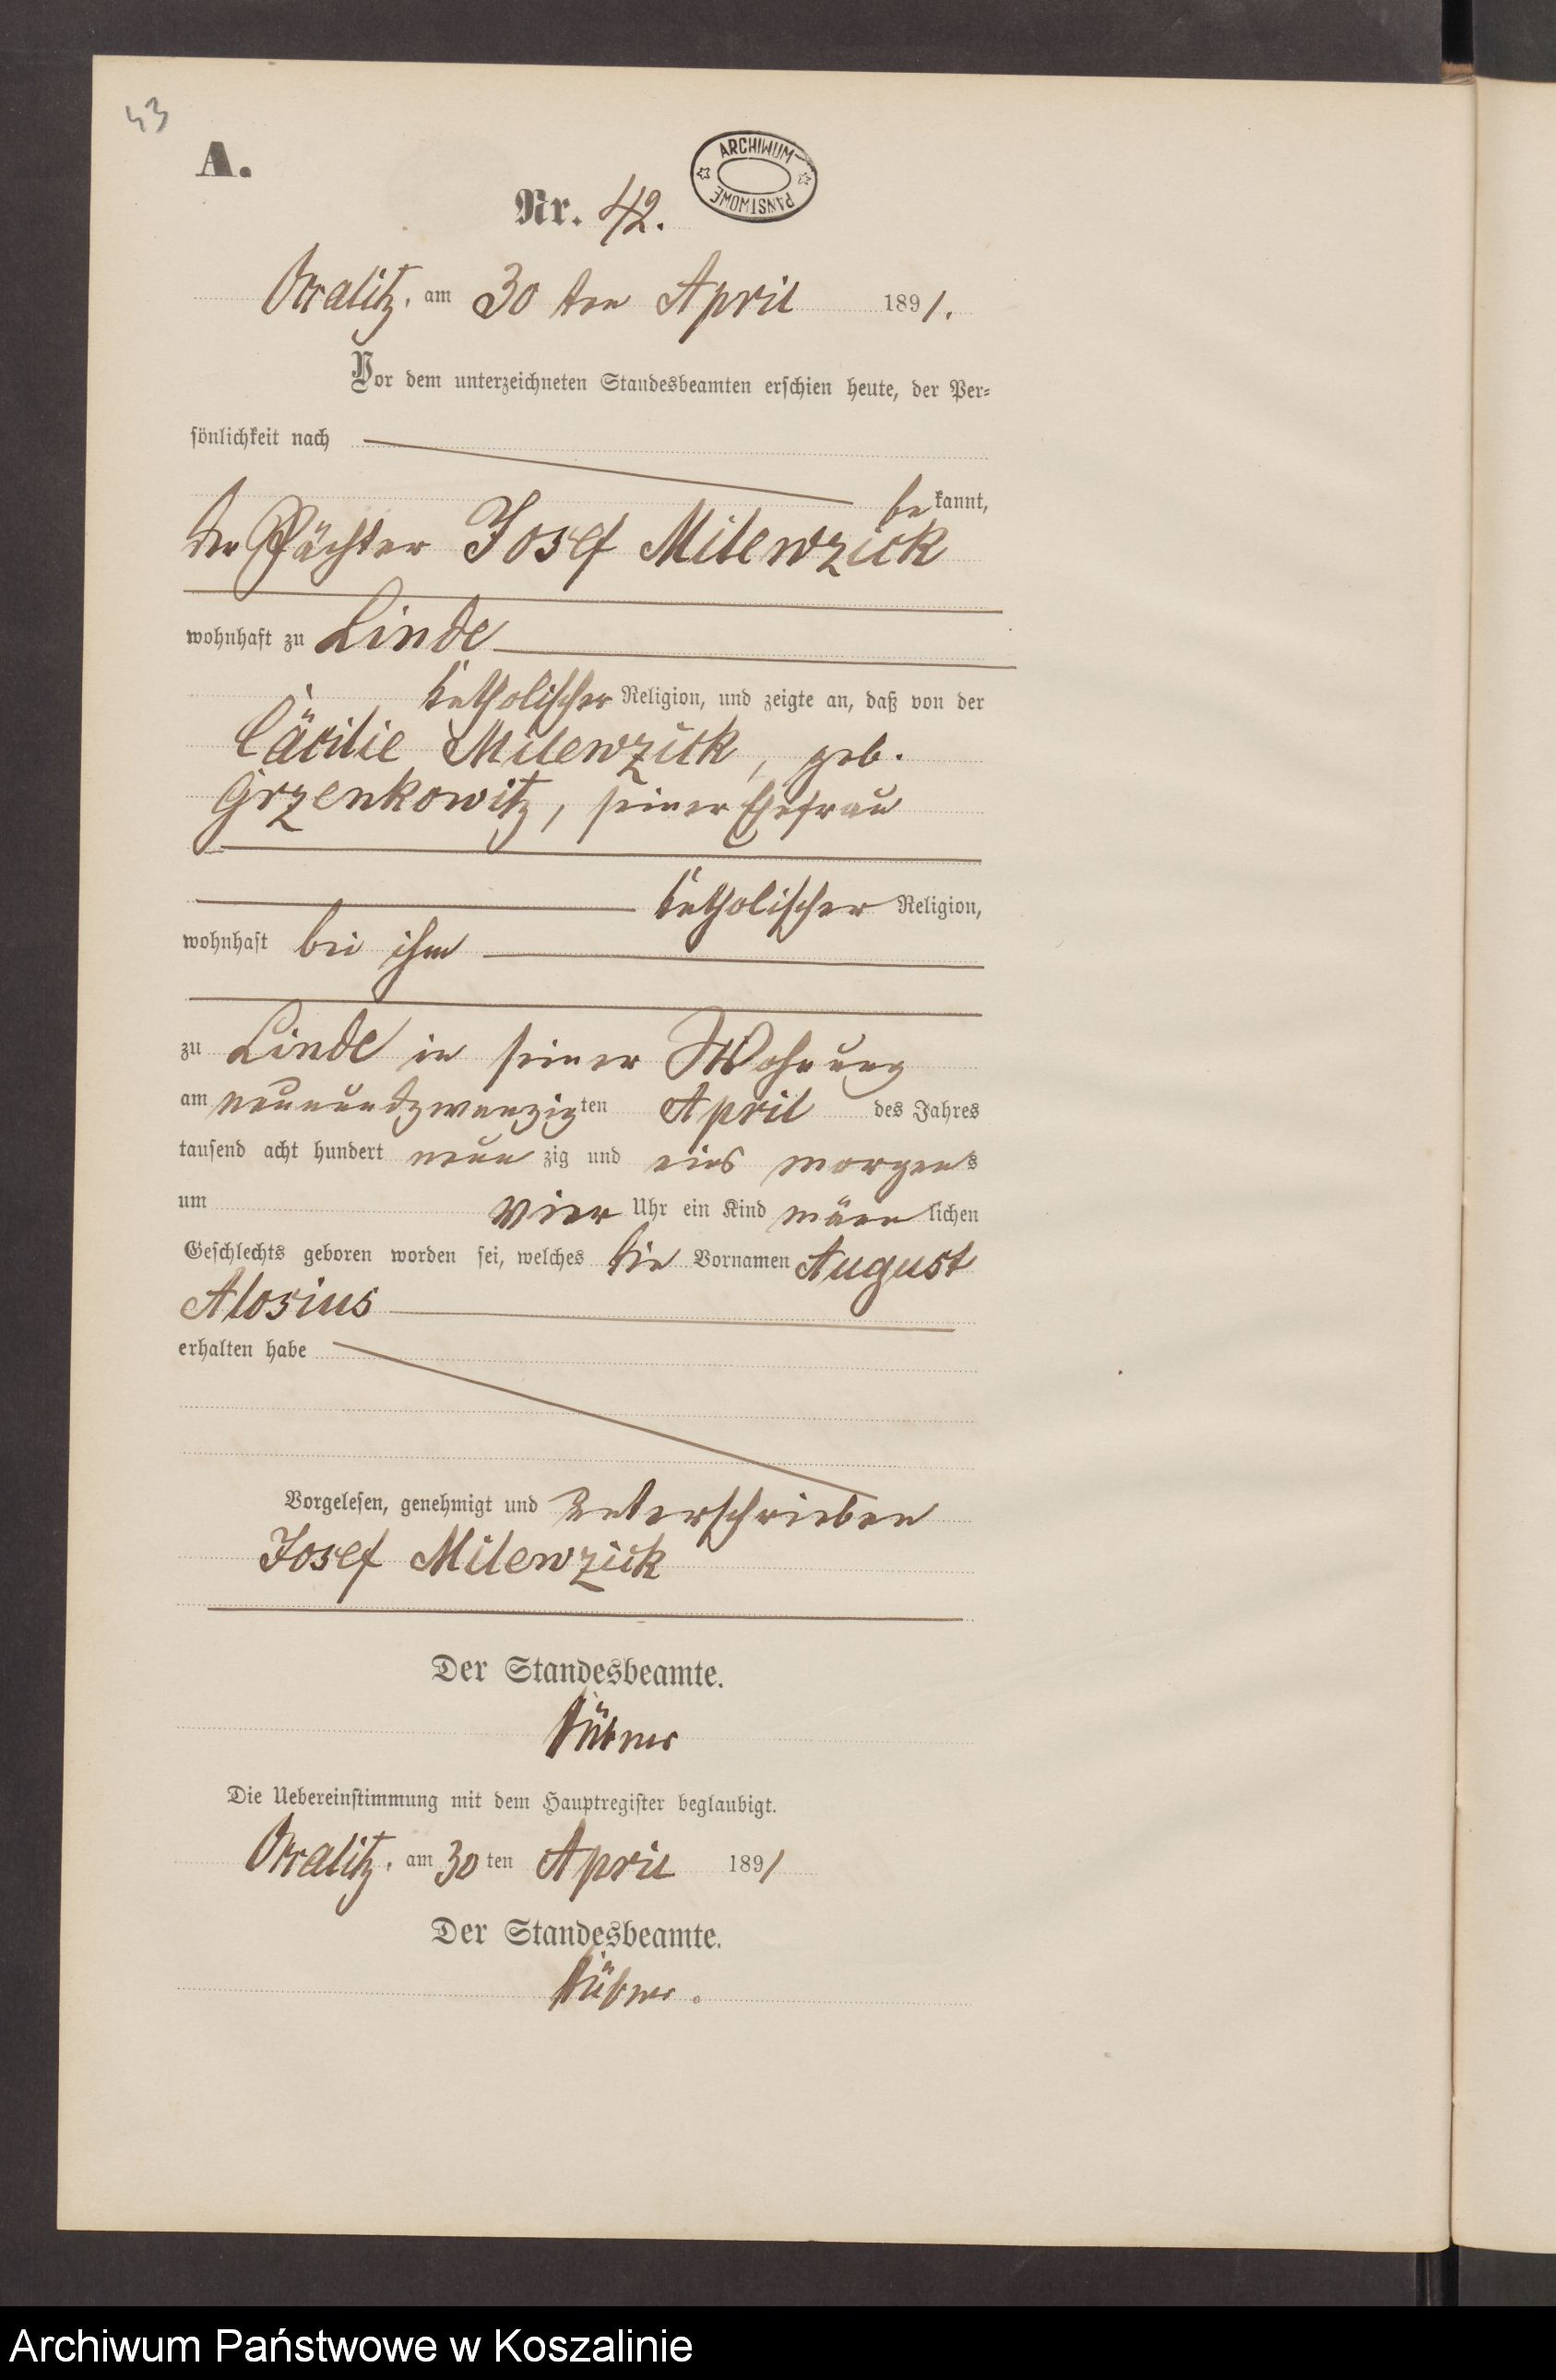 43
A.
ARCHIWUM PAŃSTWOWE
Nr. 42.
am 30 ten April 1891.
Vor dem unterzeichneten Standesbeamten erschien heute, der Per-
sönlichkeit nach
bekannt,
der Pächter Josef Milewzick
wohnhaft zu Linde
katholischer Religion, und zeigte an, daß von der
Cäcilie Milewzick, geb.
Grzenkowitz, seiner Ehefrau
katholischer Religion,
wohnhaft bei ihm
zu Linde in seiner Wohnung
am neunundzwanzigten April des Jahres
tausend acht hundert neunzig und eins morgens
um vier Uhr ein Kind männlichen
Geschlechts geboren worden sei, welches die Vornamen August
Alosius
erhalten habe
Vorgelesen, genehmigt und unterschrieben
Josef Milewzick
Der Standesbeamte.
Die Uebereinstimmung mit dem Hauptregister beglaubigt.
am 30 ten April 1891
Der Standesbeamte.
Archiwum Państwowe w Koszalinie